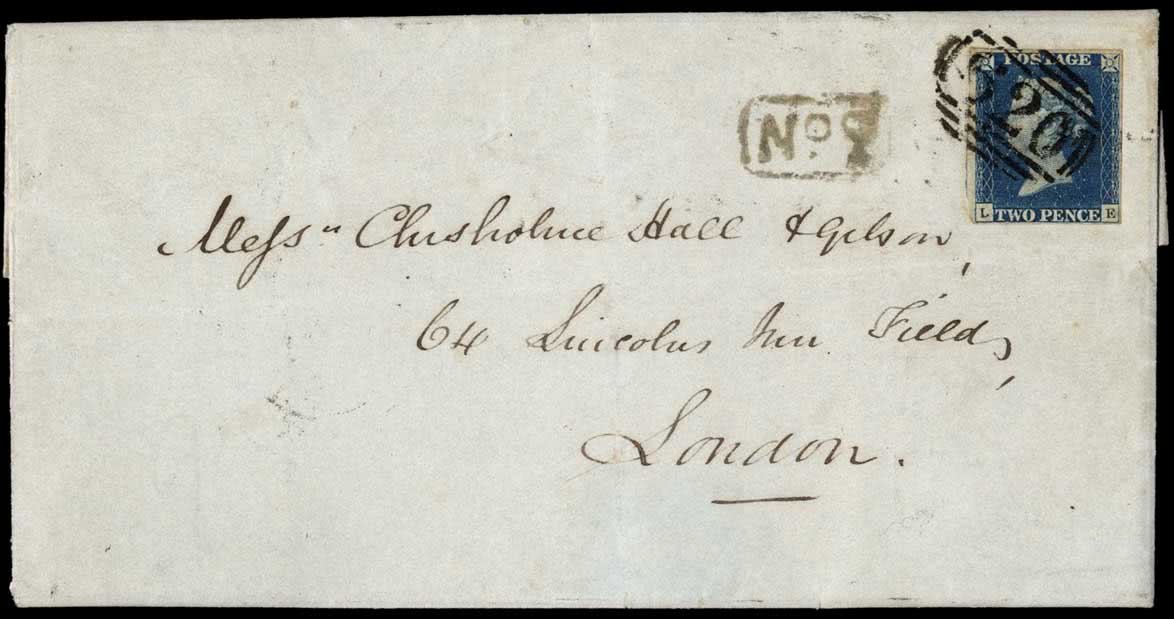 POSTAGE
620
No. 2
L TWO PENCE E
Messrs Chisholme Hall & Gibson,
64 Lincolns Inn Fields,
London.